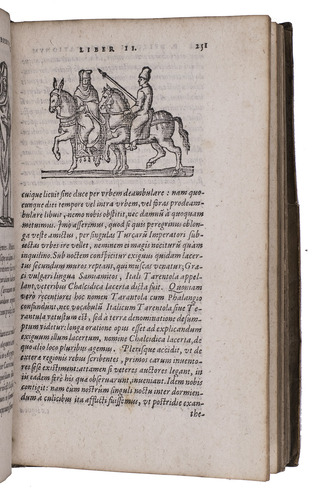 LIBER II. 231
cuique licuit sine duce per vrbem deambulare: nam quo-
cunque diei tempore vel intra vrbem, vel foras prodeam-
bulare libuit, nemo nobis obstitit, nec damnū à quoquam
metuimus. Imò asserimus, quod si quis peregrinus oblon-
ga veste amictus, per singulas Turcarū Imperatori sub-
iectas vrbes ire vellet, neminem ei magis nociturū quàm
inquilino. Sub noctem conspicitur exiguus quidam lacer-
tus secundùm muros reptans, qui muscas venatur, Græ-
cis vulgari lingua Samiamitos, Itali Tarentola appel-
lant, veteribus Chalcidica lacerta dicta fuit. Quoniam
verò recentiores hoc nomen Tarantola cum Phalangio
confundunt, nec vocabulū Italicum Tarentola siue Ta-
rantula vetustum est, sed à terra denominatione desum-
ptum videtur: longa oratione opus esset ad explicandum
exiguum illum lacertum, nomine Chalcidica lacerta, de
quo alio loco pluribus agemus. Plerisque accidit, vt de
exteræ regionis rebus scribentes, primos earum inuento-
res se esse existiment: attamen si veteres auctores legant, in
iis eadem ferè his quæ obseruarunt, inueniant. Idem nobis
contigit: nam cum nostrûm singuli noctu inter dormien-
dum à culicibus ita afflicti fuissemus, vt postridie exan-
the-